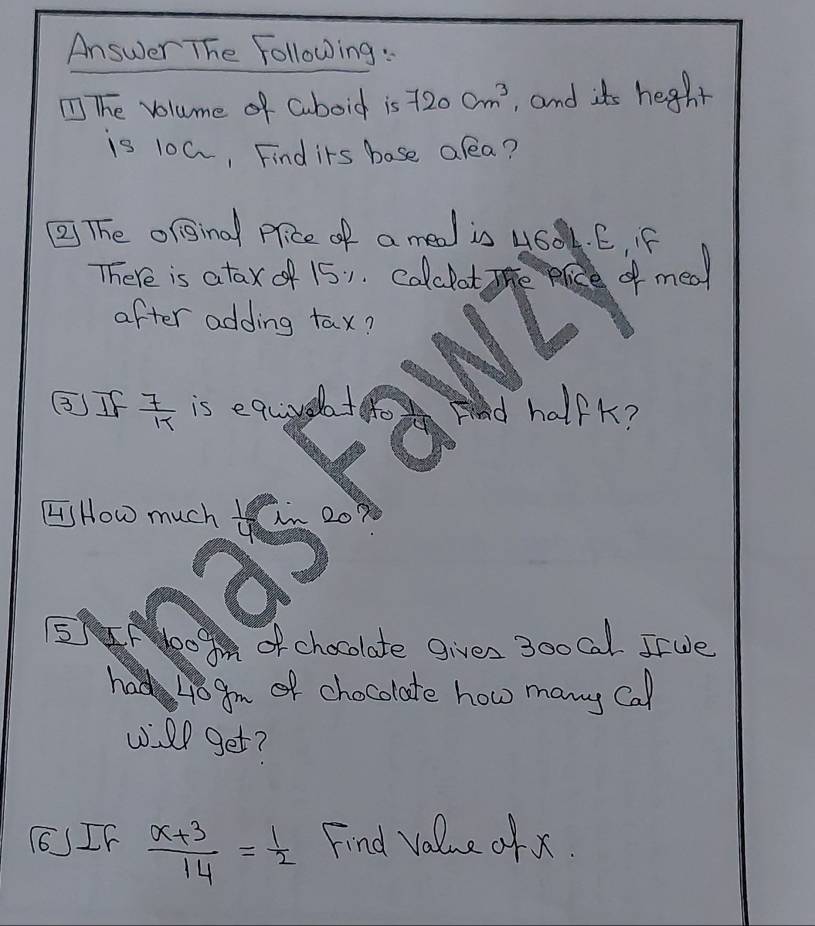 Answer The Following:
1 The volume of Cuboid is 720 cm³, and its heght
is 10cm, Find its base area?
2 The original Price of a meal is 460 L.E, if
There is a tax of 15%. Calculat The Price of meal
after adding tax?
3 If 7/K is equivelat to 1/4 Find half K?
4 How much 1/4 in 20?
5 If 100gm of chocolate gives 300 Cal If we
had 40gm of chocolate how many Cal
will get?
6 If x+3/14 = 1/2 Find value of x.
Inas Fawzy